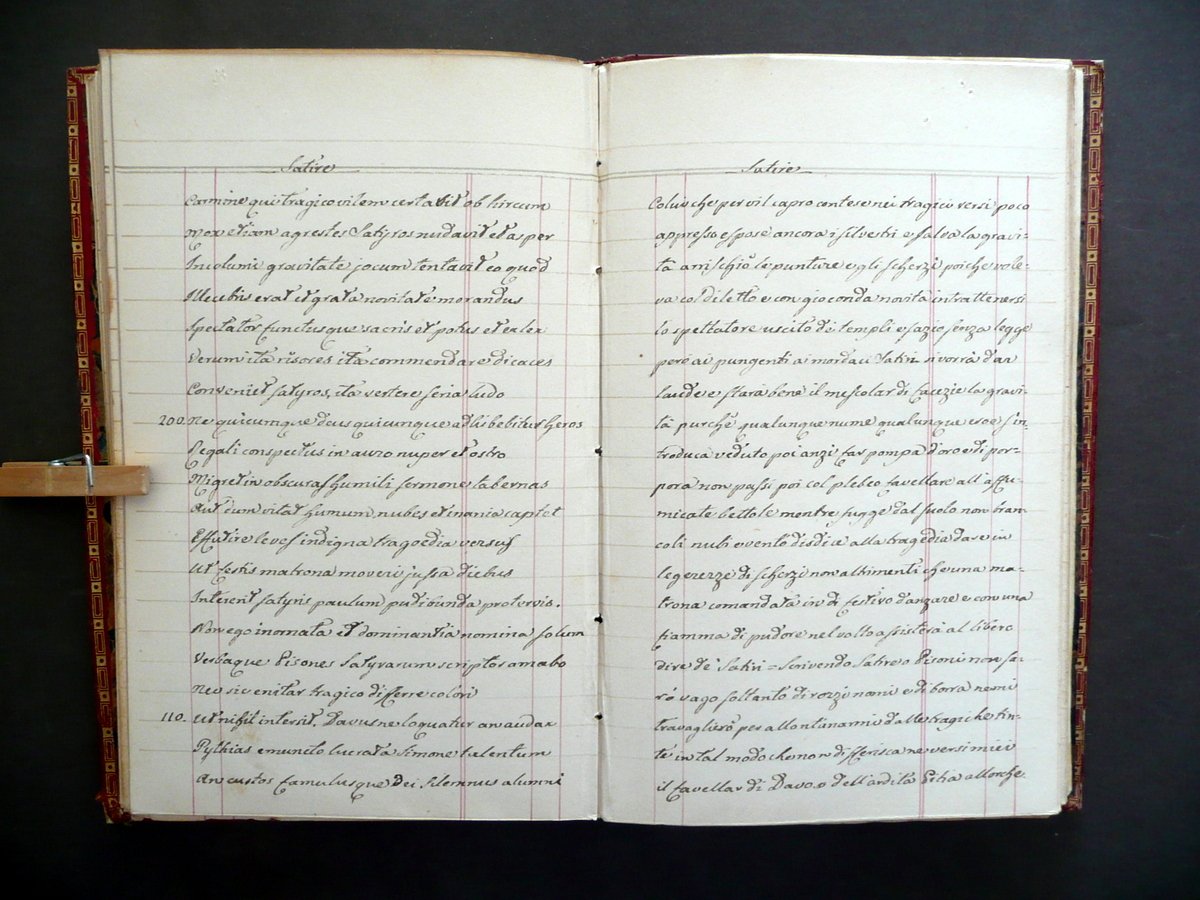 Satire
Carmine qui tragico vilem certavit ob hircum
Mox etiam agrestes Satyros nudavit et asper
Incolumi gravitate jocum tentavit eo quod
Illecebis erat et grata novitate morandus
Spectator functusque sacris et potus et exlex
Verum ita risores ita commendare dicaces
Conveniet satyros, ita vertere seria ludo
200. Ne quicumque deus quicunque adhibebitur heros
Regali conspectus in auro nuper et ostro
Migret in obscuras humili sermone tabernas
Aut dum vitat humum, nubes et inania captet
Effutire leves indigna tragoedia versus
Ut festis matrona moveri jussa diebus
Intererit satyris paulum pudibunda protervis.
Non ego inornata et dominantia nomina solum
Verbaque Pisones Satyrarum scriptor amabo
Nec sic enitar tragico differre colori
110. Ut nihil intersit, Davusne loquatur an audax
Pythias emuncto lucrata Simone talentum
An custos famulusque Dei Silemnus alumni
Satire
Colui che per vil capro contese nei tragici versi poco
appresso espose ancora i silvestri e salva la gravi-
tà arrischiò le punture e gli scherzi poiche vole-
va col diletto e con gioconda novità intrattenersi
lo spettatore uscito di templi e sazio senza legge
però ai pungenti ai mordaci Satiri si vorrà dar
laude e starà bene il mescolar di facezie la gravi-
tà purchè qualunque nume qualunque eroe s'in-
troduca veduto poi anzi far pompa d'oro e di por-
pora non passi poi col plebeo favellare all'affu-
micate bettole mentre fugge dal suolo non bran-
coli nubi e vento disdice alla tragedia dare in
legerezze di scherzi non altrimenti che una ma-
trona comandata in dì festivo danzare e con una
fiamma di pudore nel volto assisterà al libero
dire de' Satiri = Scrivendo Satire o Pisoni non sa-
rò vago soltanto di rozzi nomi e di borra ne mi
travaglierò per allontanarmi dalle tragiche tin-
te in tal modo che non differisca ne versi miei
il favellar di Davo, o dell'ardita Pitia allorche